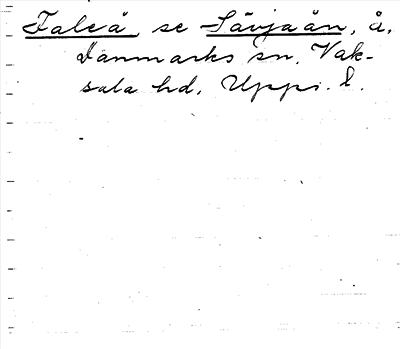 Faleå, se Sävjaån, å,
Danmarks sn. Vak-
sala hd. Upps. l.